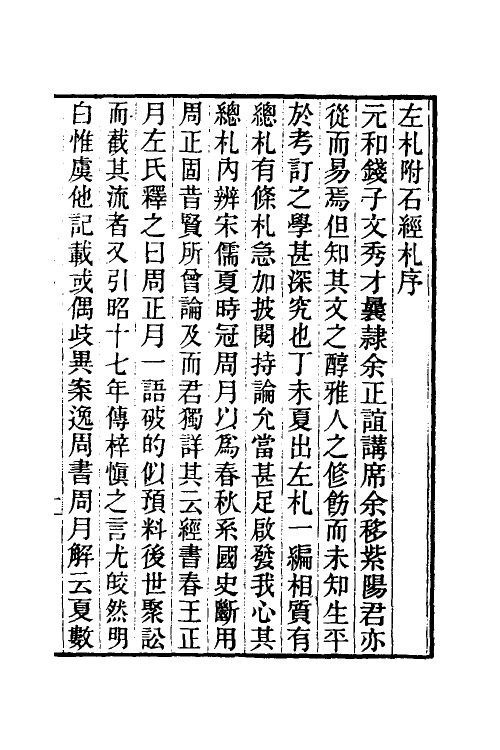 左札附石經札序
元和錢子文秀才曩隷余正誼講席余移紫陽君亦
從而易焉但知其文之醇雅人之修飭而未知生平
於考訂之學甚深究也丁未夏出左札一編相質有
總札有條札急加披閱持論允當甚足啟發我心其
總札內辨宋儒夏時冠周月以爲春秋系國史斷用
周正固昔賢所曾論及而君獨詳其云經書春王正
月左氏釋之曰周正月一語破的似預料後世聚訟
而截其流者又引昭十七年傳梓愼之言尤皎然明
白惟虞他記載或偶歧異案逸周書周月解云夏數